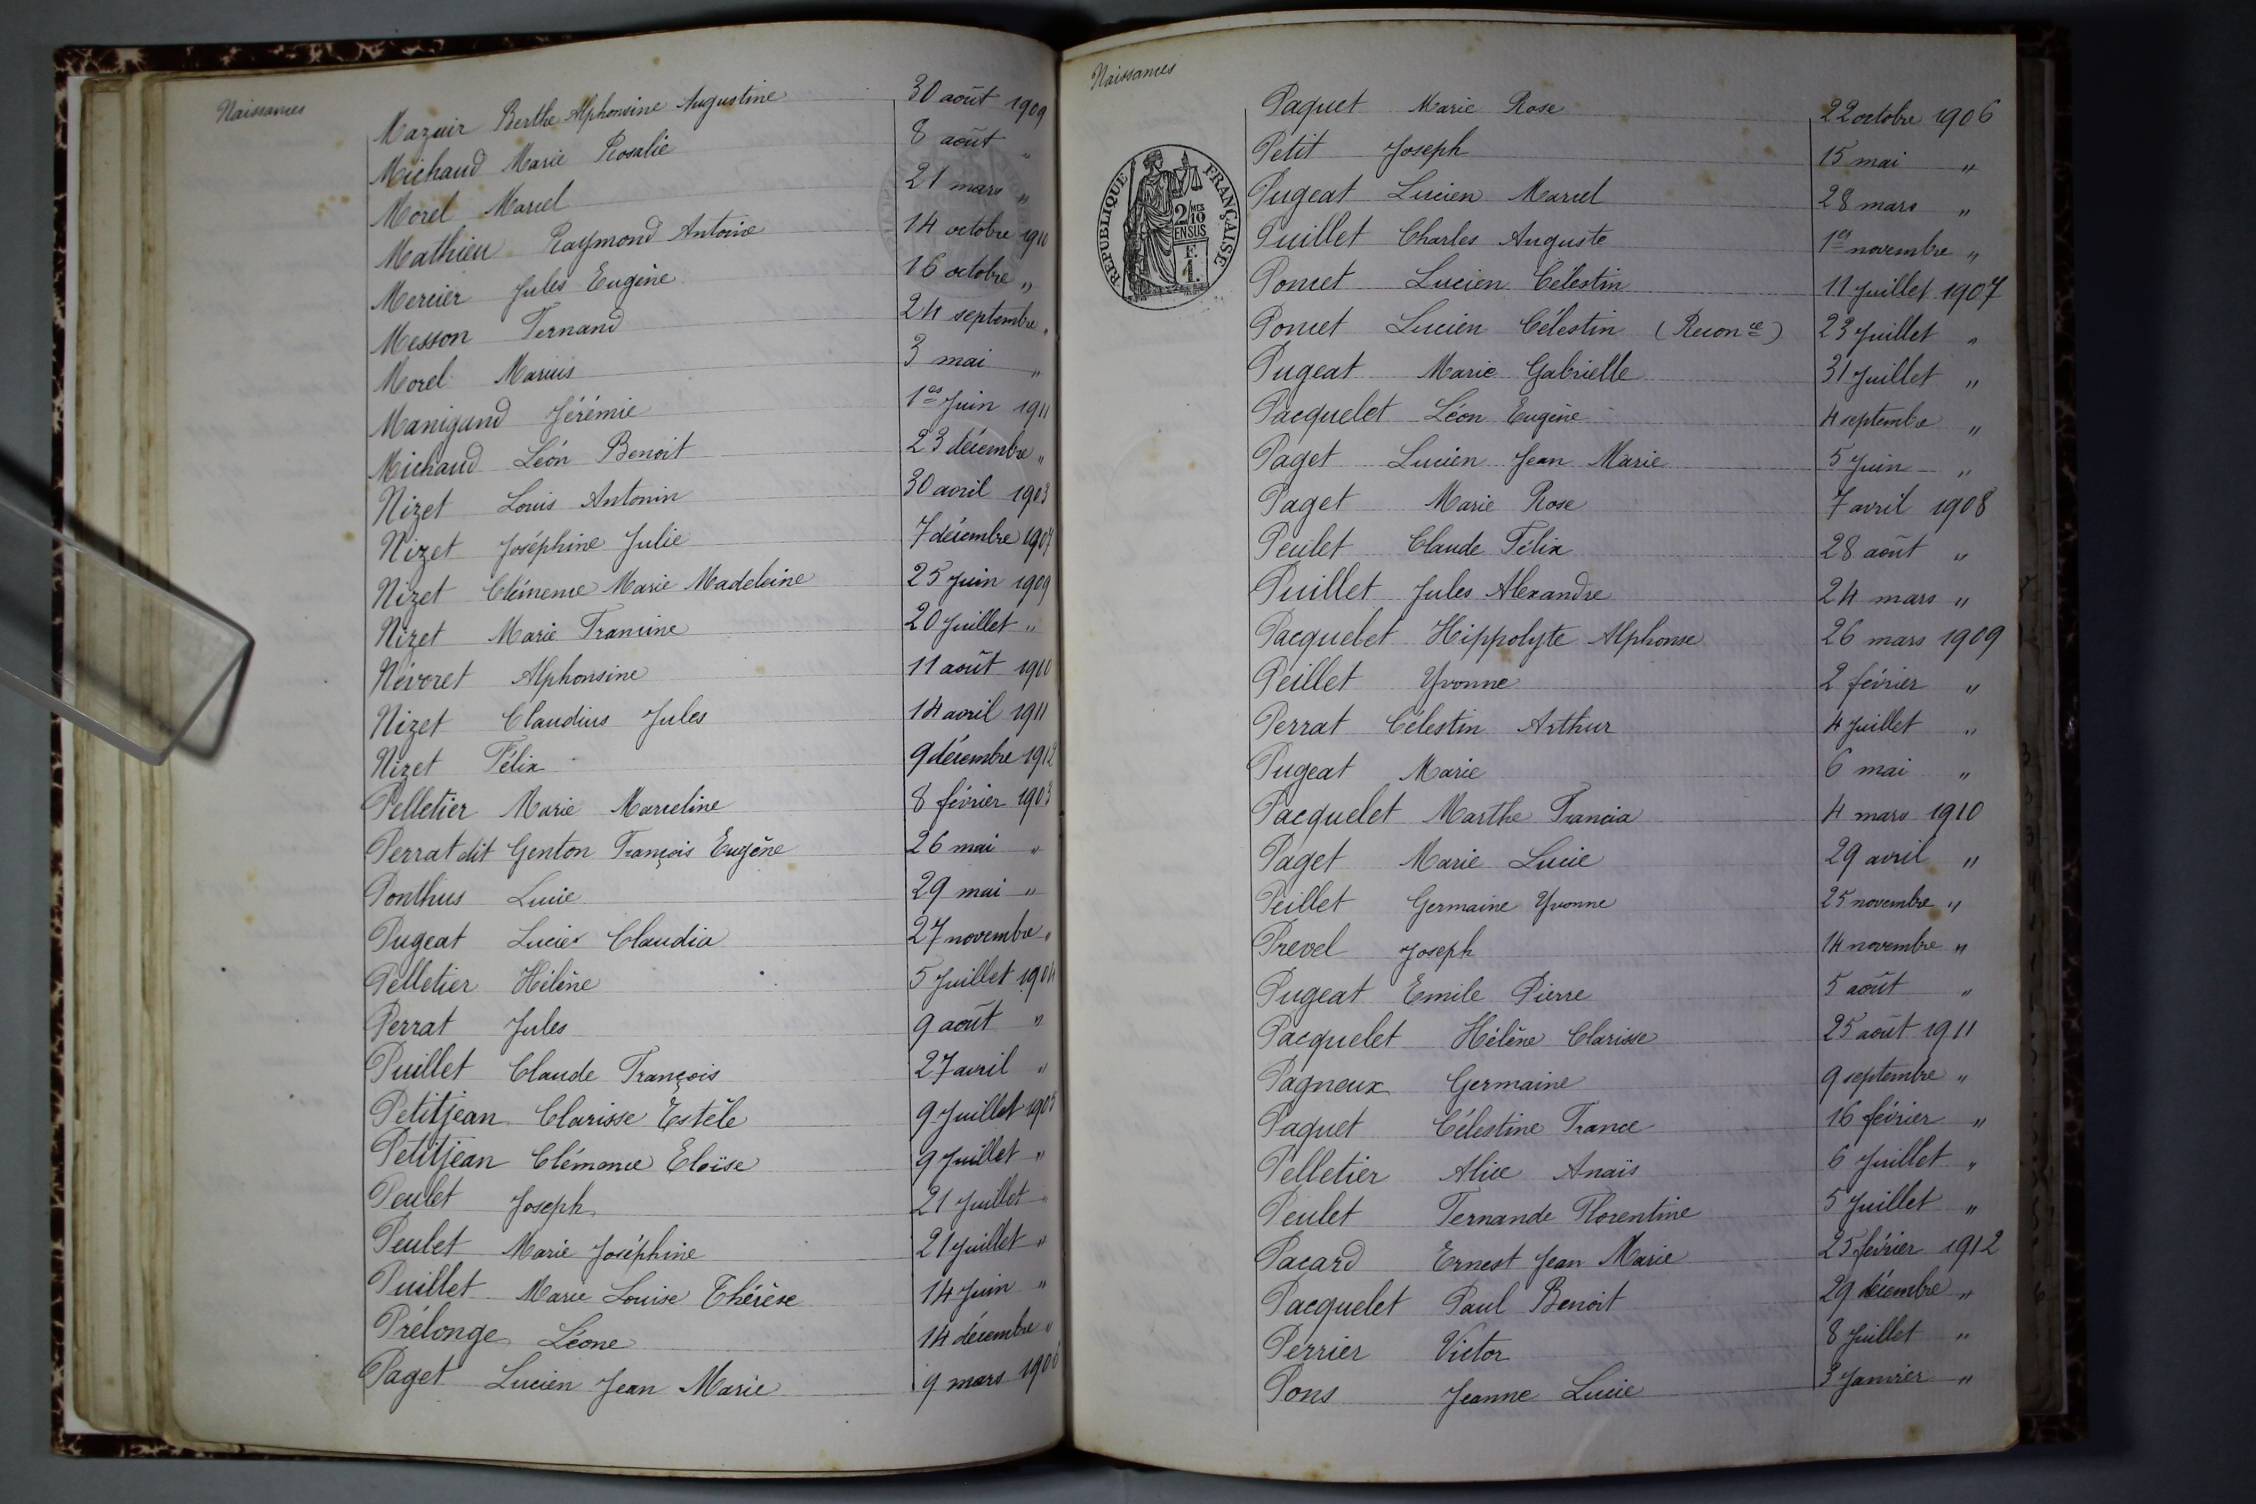 Naissances
Mazuir Berthe Alphonsine Augustine 30 août 1909
Michaud Marie Rosalie 8 août "
Morel Marcel 21 mars "
Mathieu Raymond Antoine 14 octobre 1910
Mercier Jules Eugène 16 octobre "
Messon Fernand 24 septembre "
Morel Marius 3 mai "
Manigand Jérémie 1er Juin 1911
Michaud Léon Benoit 23 décembre "
Nizet Louis Antonin 30 avril 1903
Nizet Joséphine Julie 7 décembre 1907
Nizet Clémence Marie Madeleine 25 Juin 1909
Nizet Marie Francine 20 Juillet "
Névoret Alphonsine 11 août 1910
Nizet Claudius Jules 14 avril 1911
Nizet Félix 9 décembre 1912
Pelletier Marie Marceline 8 février 1903
Perrat dit Genton François Eugène 26 mai "
Ponthus Lucie 29 mai "
Pugeat Lucie Claudia 27 novembre "
Pelletier Hélène 5 Juillet 1904
Perrat Jules 9 août "
Puillet Claude François 27 avril "
Petitjean Clarisse Estèle 9 Juillet 1905
Petitjean Clémence Eloïse 9 Juillet "
Peulet Joseph 21 Juillet "
Peulet Marie Joséphine 21 Juillet "
Puillet Marie Louise Thérèse 14 Juin "
Prélonge Léone 14 décembre "
Paget Lucien Jean Marie 9 mars 1906
Naissances
RÉPUBLIQUE FRANÇAISE
2/10 MES
EN SUS
F.
1.
Paquet Marie Rose 22 octobre 1906
Petit Joseph 15 mai "
Pugeat Lucien Marcel 28 mars "
Puillet Charles Auguste 1er novembre "
Poncet Lucien Célestin 11 Juillet 1907
Poncet Lucien Célestin (Reconce) 23 Juillet "
Pugeat Marie Gabrielle 31 Juillet "
Pacquelet Léon Eugène 4 septembre "
Paget Lucien Jean Marie 5 Juin "
Paget Marie Rose 7 avril 1908
Peulet Claude Félix 28 août "
Puillet Jules Alexandre 24 mars "
Pacquelet Hippolyte Alphonse 26 mars 1909
Peillet Yvonne 2 février "
Perrat Célestin Arthur 4 Juillet "
Pugeat Marie 6 mai "
Pacquelet Marthe Francia 4 mars 1910
Paget Marie Lucie 29 avril "
Peillet Germaine Yvonne 25 novembre "
Prevel Joseph 14 novembre "
Pugeat Emile Pierre 5 août "
Pacquelet Hélène Clarisse 25 août 1911
Pagneux Germaine 9 septembre "
Paquet Célestine France 16 février "
Pelletier Alice Anaïs 6 Juillet "
Peulet Fernande Florentine 5 Juillet "
Pacard Ernest Jean Marie 25 février 1912
Pacquelet Paul Benoit 29 décembre "
Perrier Victor 8 Juillet "
Pons Jeanne Lucie 3 Janvier "